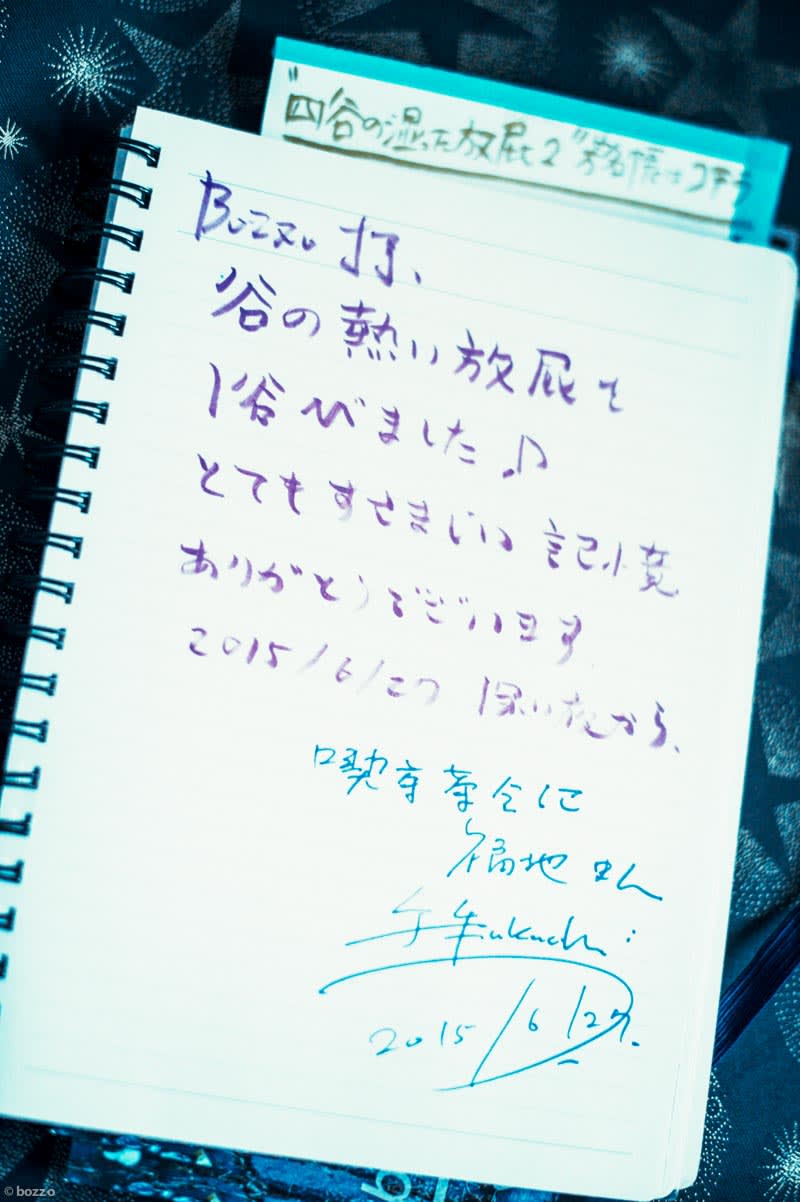 "四谷の湿った放屁2"芳名帳はコチラ
Bozzo 打、
谷の熱い放屁を
浴びました♪
とてもすさまじい 記憶
ありがとうでございます
2015/6/27 深い から、
喫茶茶会記
福地 さん
Fukuchi
2015/6/27.
© bozzo